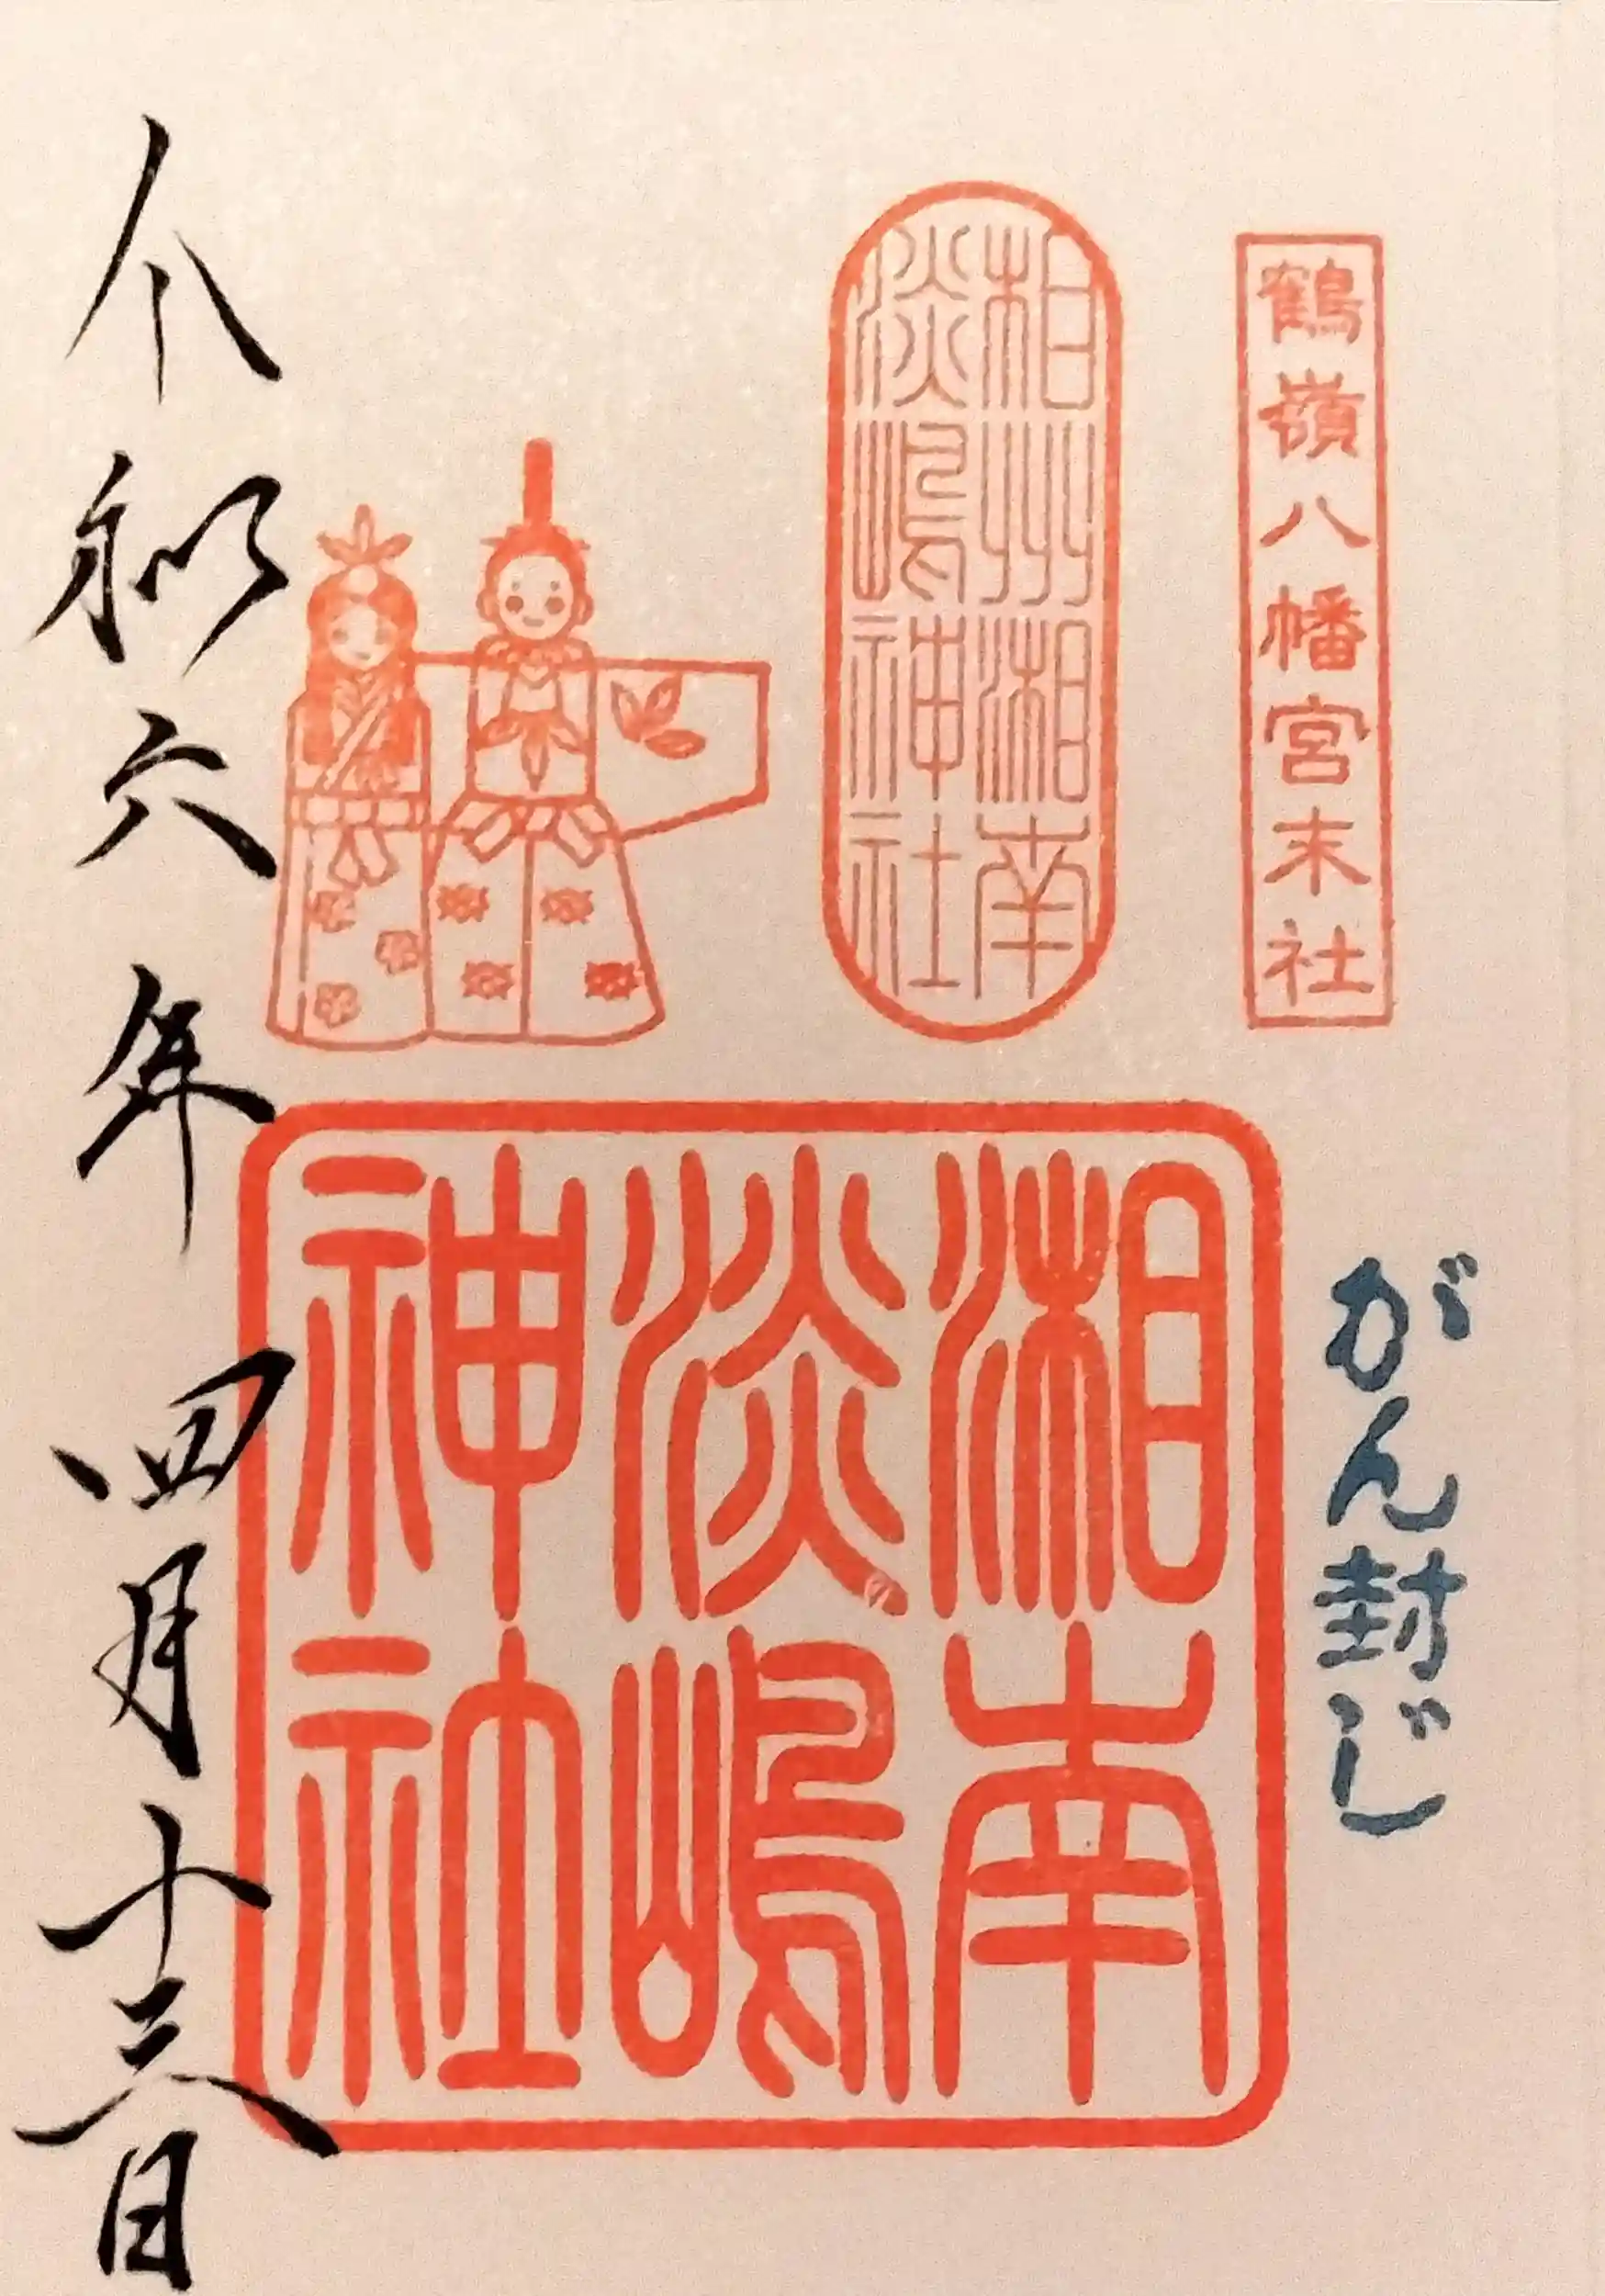 鶴嶺八幡宮末社
がん封じ
相州湘南
淡嶋神社
湘南
淡嶋
神社
令和六年四月十三日